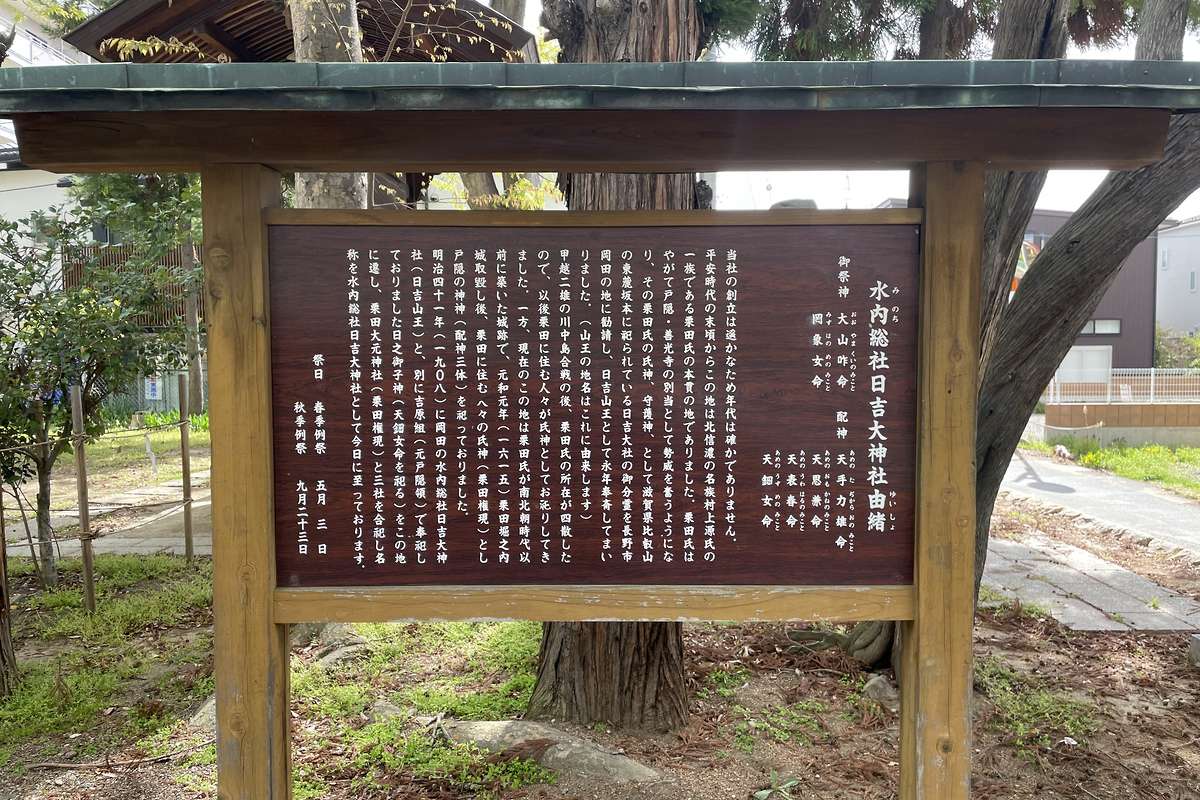 みのち
水内総社日吉大神社由緒
ゆいしょ
御祭神
おおやまくいのみこと
大山咋命
みずはのめのみこと
罔象女命
配神
あめのたぢからおのみこと
天手力雄命
あめのおもかねのみこと
天思兼命
あめのうわはるのみこと
天表春命
あめのうずめのみこと
天鈿女命
当社の創立は遥かなため年代は確かでありません。
平安時代の末頃からこの地は北信濃の名族村上源氏の
一族である栗田氏の本貫の地でありました。栗田氏は
やがて戸隠・善光寺の別当として勢威を奮うようにな
り、その栗田氏の氏神、守護神、として滋賀県比叡山
の東麓坂本に祀られている日吉大社の御分霊を長野市
岡田の地に勧請し、日吉山王として永年奉斎してまい
りました。（山王の地名はこれに由来します）
甲越二雄の川中島合戦の後、栗田氏の所在が四散した
ので、以後栗田に住む人々が氏神としてお祀りしてき
ました。一方、現在のこの地は栗田氏が南北朝時代以
前に築いた城跡で、元和元年（一六一五）栗田堀之内
城取毀し後、栗田に住む人々の氏神（栗田権現）とし
戸隠の神神（配神三体）を祀っておりました。
明治四十一年（一九〇八）に岡田の水内総社日吉大神
社（日吉山王）と、別に吉原組（元戸隠領）で奉祀し
ておりました日之御子神（天鈿女命を祀る）をこの地
に遷し、栗田大元神社（栗田権現）と三社を合祀し名
称を水内総社日吉大神社として今日に至っております。
祭日 春季例祭 五月三日
秋季例祭 九月二十三日